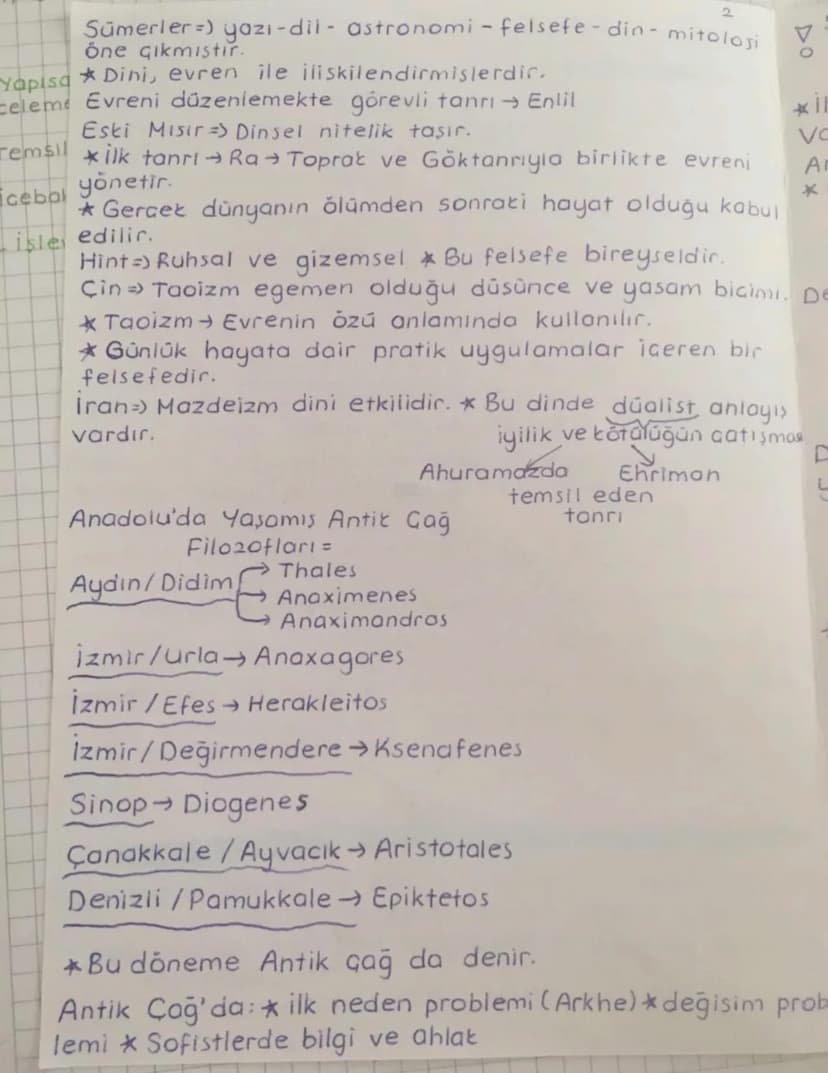 2
Sümerler=) yazı-dil- astronomi - felsefe - din - mitoloji
öne çıkmıştır.
* Dini, evren ile ilişkilendirmişlerdir.
Evreni düzenlemekte görevli tanrı → Enlil
Eski Mısır => Dinsel nitelik taşır.
* İlk tanrı → Ra → Toprak ve Göktanrıyla birlikte evreni
yönetir.
* Gerçek dünyanın ölümden sonraki hayat olduğu kabul
edilir.
Hint=) Ruhsal ve gizemsel * Bu felsefe bireyseldir.
Çin => Taoizm egemen olduğu düşünce ve yaşam biçimi.
* Taoizm → Evrenin özü anlamında kullanılır.
* Günlük hayata dair pratik uygulamalar içeren bir
felsefedir.
İran=) Mazdeizm dini etkilidir. * Bu dinde düalist anlayış
vardır.
iyilik ve kötülüğün çatışması
Ahuramazda Ehriman
temsil eden
tanrı
Anadolu'da Yaşamış Antik Çağ
Filozofları =
Aydın / Didim → Thales
→ Anaximenes
→ Anaximandros
İzmir / Urla → Anaxagores
İzmir / Efes → Herakleitos
İzmir / Değirmendere → Ksenafenes
Sinop → Diogenes
Çanakkale / Ayvacık → Aristotales
Denizli / Pamukkale → Epiktetos
* Bu döneme Antik çağ da denir.
Antik Çağ'da: * ilk neden problemi (Arkhe) * değişim prob
lemi * Sofistlerde bilgi ve ahlak